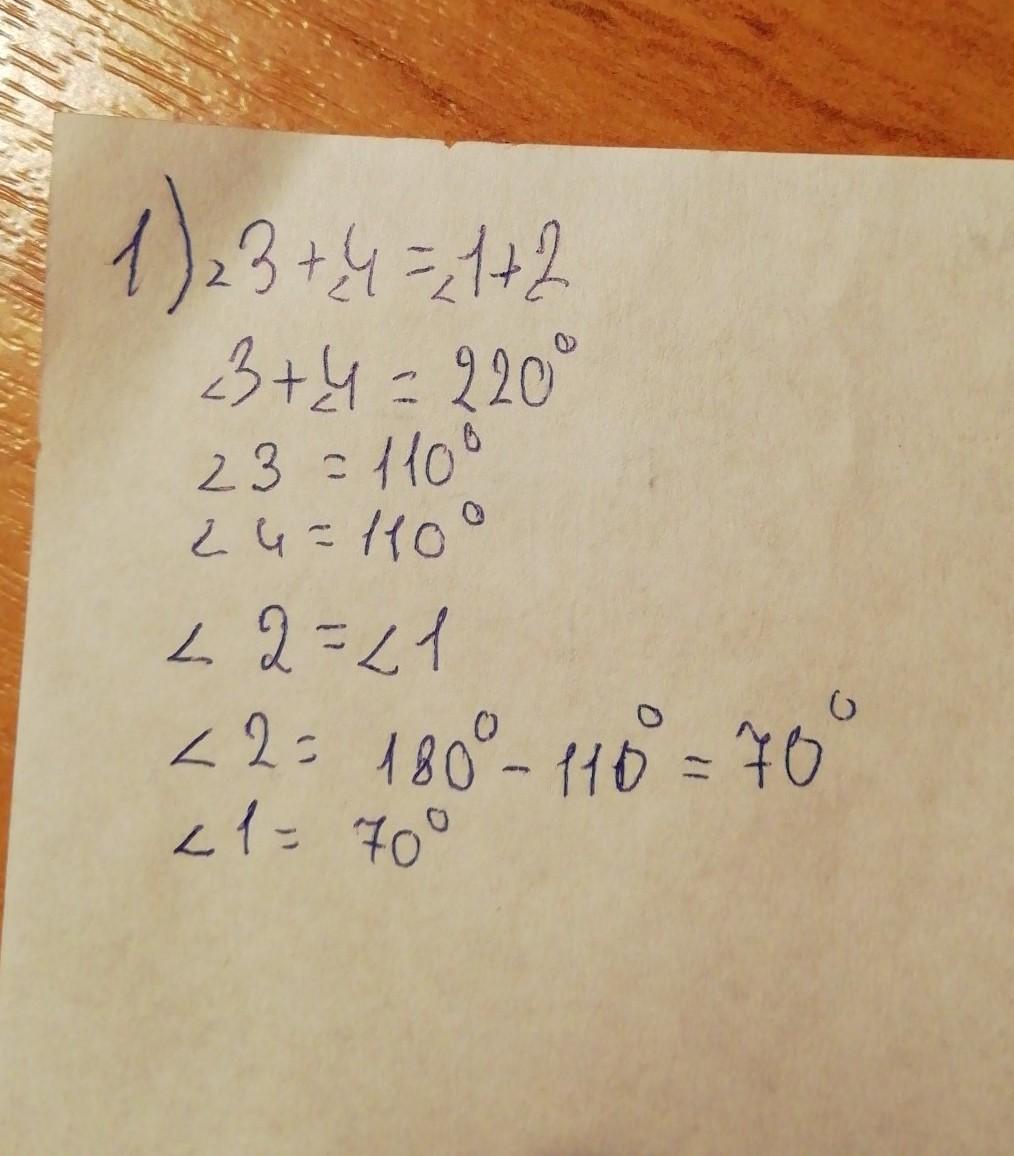 1) ∠3 + ∠4 = ∠1 + ∠2
∠3 + ∠4 = 220°
∠3 = 110°
∠4 = 110°
∠2 = ∠1
∠2 = 180° - 110° = 70°
∠1 = 70°